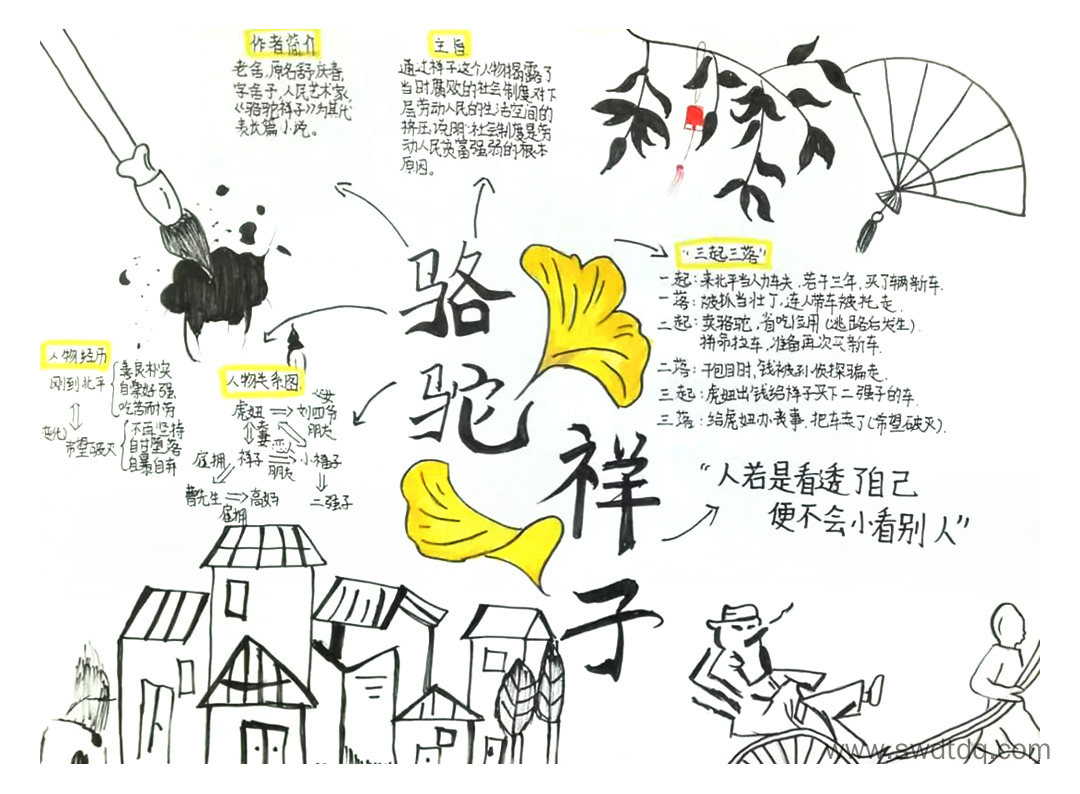 作者简介
老舍,原名舒庆春,
字舍予,人民艺术家,
《骆驼祥子》为其代
表长篇小说。
主旨
通过祥子这个人物揭露了
当时腐败的社会制度对下
层劳动人民的生活空间的
挤压,说明:社会制度是劳
动人民贫富强弱的根本
原因。
骆驼祥子
"三起三落"
一起:来北平当人力车夫,若干三年,买了辆新车.
一落:被抓当壮丁,连人带车被托走.
二起:卖骆驼,省吃俭用(逃路后发生).
拼命拉车,准备再次买新车.
二落:干包月时,钱被孙侦探骗走.
三起:虎妞出钱给祥子买下二强子的车.
三落:给虎妞办丧事,把车卖了(希望破灭).
"人若是看透了自己
便不会小看别人"
人物经历
刚到北平
善良朴实
自尊好强
吃苦耐劳
变化
希望破灭
不再坚持
自甘堕落
自暴自弃
人物关系图
父女
虎妞
刘四爷
夫妻
恋人
朋友
雇拥
祥子
小福子
朋友
曹先生
高妈
二强子
雇拥
www.swdtdq.com